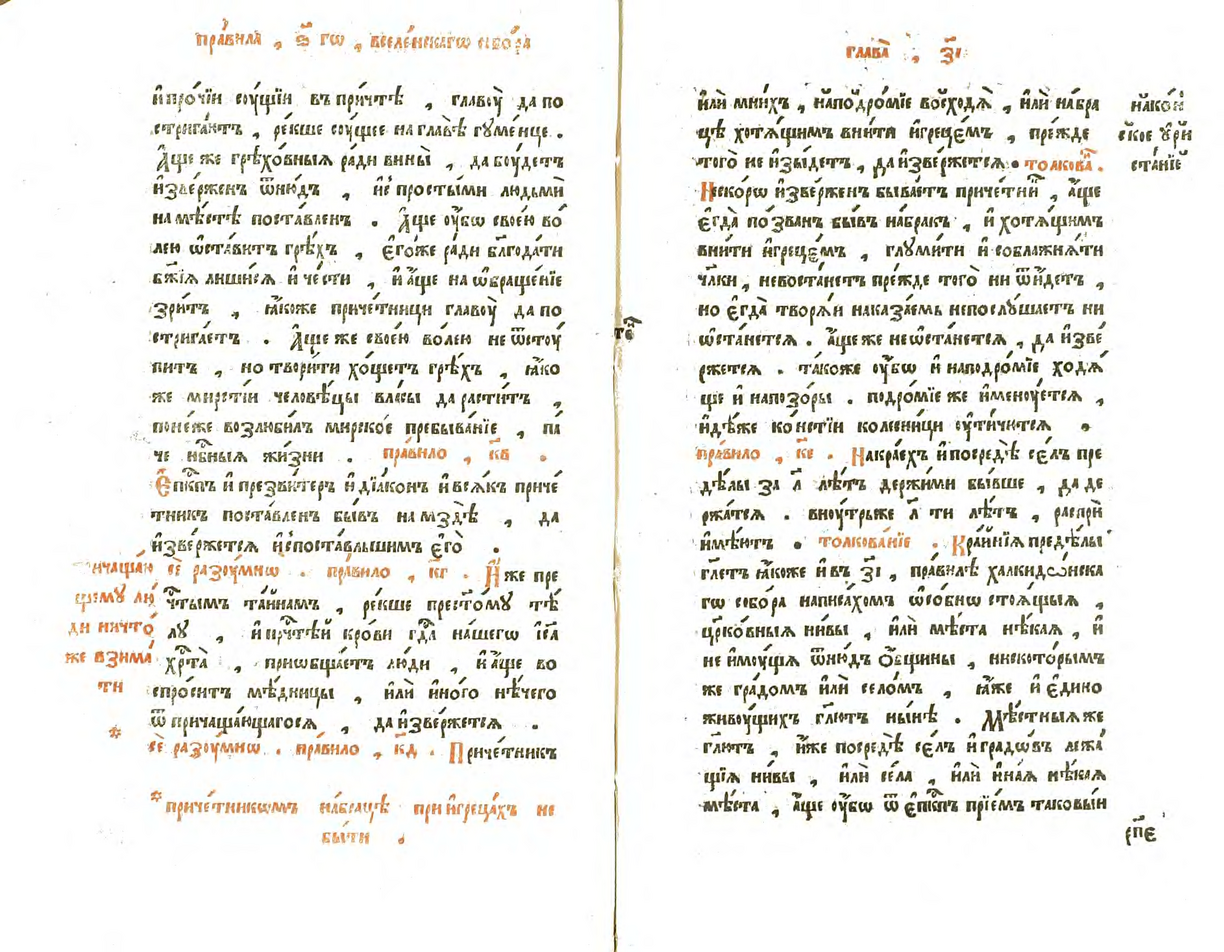 пра́вила , ѕ҃ гѡ , вселе́нскагѡ собо́ра
и҆про́чїи сꙋ́щїи въ при́чтѣ , главꙋ̀ да по
стрига́ютъ , ре́кше сꙋ́щее на главѣ̀ гꙋме́нце .
А҆́ще же грѣхо́вныѧ ра́ди вины̀ , да бꙋ́детъ
и҆зве́рженъ ѿню́дъ , и҆с просты́ми людьмѝ
на мѣ́стѣ поста́вленъ . А҆́ще ᲂу҆́бѡ свое́ю во́
лею ѡ҆ста́витъ грѣ́хъ , є҆го́же ра́ди бл҃года́ти
бж҃їѧ лиши́сѧ и҆ че́сти , и҆ а҆́ще на ѡ҆браще́нїе
зри́тъ , ꙗ҆́коже приче́тницы главꙋ̀ да по
стрига́етъ . А҆́ще же свое́ю во́лею не ѿстꙋ́
питъ , но твори́ти хо́щетъ грѣ́хъ , ꙗ҆́ко
же ми́рстїи человѣ́цы власы̀ да расти́тъ ,
поне́же возлюби́лъ мирско́е пребыва́нїе , па́
че нб҃ныѧ жи́зни . пра́вило , к҃в .
Є҆пⷭ҇кпъ и҆ презви́теръ и҆ дїа́конъ и҆ всѧ́къ приче́
тникъ поста́вленъ бы́въ на мздѣ̀ , да
и҆зве́ржетсѧ и҆с̾поста́вльшимъ є҆го̀ .
сѐ разꙋ́мнѡ . пра́вило , к҃г . И҆́же пре
чⷭ҇тымъ та́йнамъ , ре́кше прест҃о́мꙋ тѣ́
лꙋ , и҆ прⷱ҇тѣ́й кро́ви гдⷭ҇а на́шегѡ і҆сⷭ҇а
хрⷭ҇та̀ , приѡбща́етъ лю́ди , и҆ а҆́ще во
спро́ситъ мѣ́дницы , и҆лѝ и҆но́го нѣ́чего
ѿ причаща́ющагосѧ , да и҆зве́ржетсѧ .
сѐ разꙋ́мнѡ . пра́вило , к҃д . Приче́тникъ
ичаща́ю
щемꙋ лю́
ди ничто́
же взима́
ти
*
* приче́тникѡмъ на́брацѣ при и҆греца́хъ не
бы́ти .
глава̀ , з҃і
и҆лѝ мни́хъ , на́подро́мїе восхо́дѧ , и҆лѝ на́бра
цѣ хотѧ́щимъ вни́ти и҆греце́мъ , пре́жде
того̀ не и҆зы́детъ , да и҆зве́ржетсѧ . толкова́ .
Не ско́рѡ и҆зве́рженъ быва́етъ приче́тни , а҆́ще
є҆гда̀ по́званъ бы́въ на́бракъ , и҆ хотѧ́щимъ
вни́ти и҆греце́мъ , глꙋми́ти и҆ соблажнѧ́ти
чл҃ки , не воста́нетъ пре́жде того̀ ни ѿи́детъ ,
но є҆гда̀ творѧ́и наказа́емь не послꙋ́шаетъ ни
ѡ҆ста́нетсѧ . а҆́ще же не ѡ҆ста́нетсѧ , да и҆зве́
ржетсѧ . та́коже ᲂу҆́бѡ и҆ на́подро́мїе ходѧ́
ще и҆ на́позо́ры . подро́мїе же и҆менꙋ́етсѧ ,
и҆дѣ́же ко́нстїи колесни́цы ᲂу҆ти́читсѧ .
пра́вило , к҃е . На кра́ехъ и҆ посредѣ̀ се́лъ пре
дѣ́лы за л҃ лѣ́тъ держи́ми бы́вше , да де
ржа́тсѧ . внꙋ́трьже л҃ ти лѣ́тъ , распрѝ
и҆мѣ́ютъ . толкова́нїе . Кра́йнїѧ предѣ́лы
гл҃етъ ꙗ҆́коже и҆ въ з҃і , пра́вилѣ халкидѡ́нска
гѡ собо́ра написа́хомъ ѡ҆со́бнѡ стоѧ́щыѧ ,
цр҃ко́вныѧ ни́вы , и҆лѝ мѣ́ста нѣ́каѧ , и҆
не и҆мꙋ́щѧ ѿню́дъ ѻ҆́бщины , ни не́которымъ
же гра́домъ и҆лѝ село́мъ , ꙗ҆́же и҆ є҆ди́но
живꙋ́щихъ гл҃ютъ ны́нѣ . Мѣ́стныѧ же
гл҃ютъ , и҆́же посредѣ̀ се́лъ и҆ градо́въ лежа́
щїѧ ни́вы , и҆лѝ се́ла , и҆лѝ и҆на́ѧ нѣ́каѧ
мѣ́ста , а҆́ще ᲂу҆́бѡ ѿ є҆пⷭ҇кпъ прїе́мъ таковы́и
на́ко́н
ское ᲂу҆ри
ста́нїе
є҆пⷭ҇